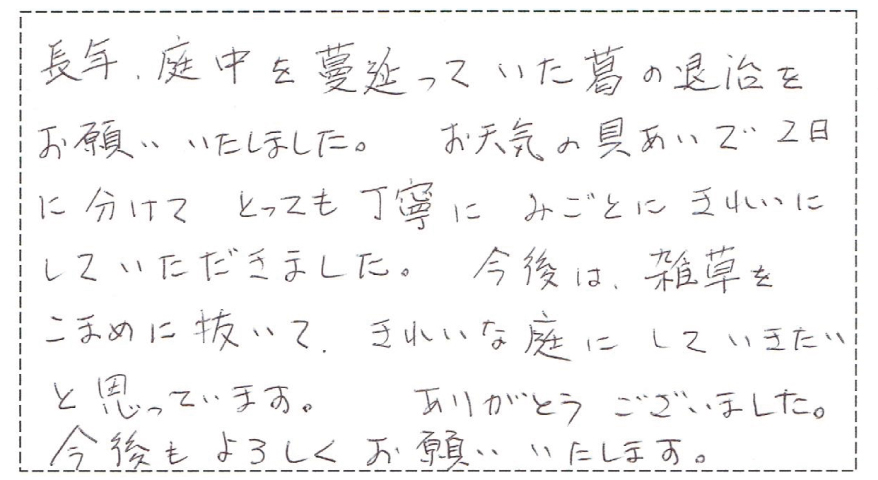 長年、庭中を蔓延っていた葛の退治を
お願いいたしました。 お天気の具あいで 2日
に分けて とっても丁寧に みごとに きれいに
していただきました。 今後は、雑草を
こまめに抜いて、きれいな庭に していきたい
と思っています。 ありがとう ございました。
今後もよろしくお願いいたします。